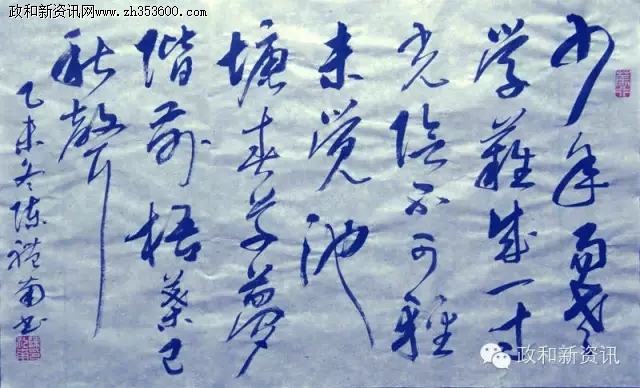 政和新资讯
www.zh353600.com
少年易老
学難成一寸
光陰不可輕
未觉池
塘春草夢
階前梧葉已
秋聲
乙未冬陈禮书
政和新资讯